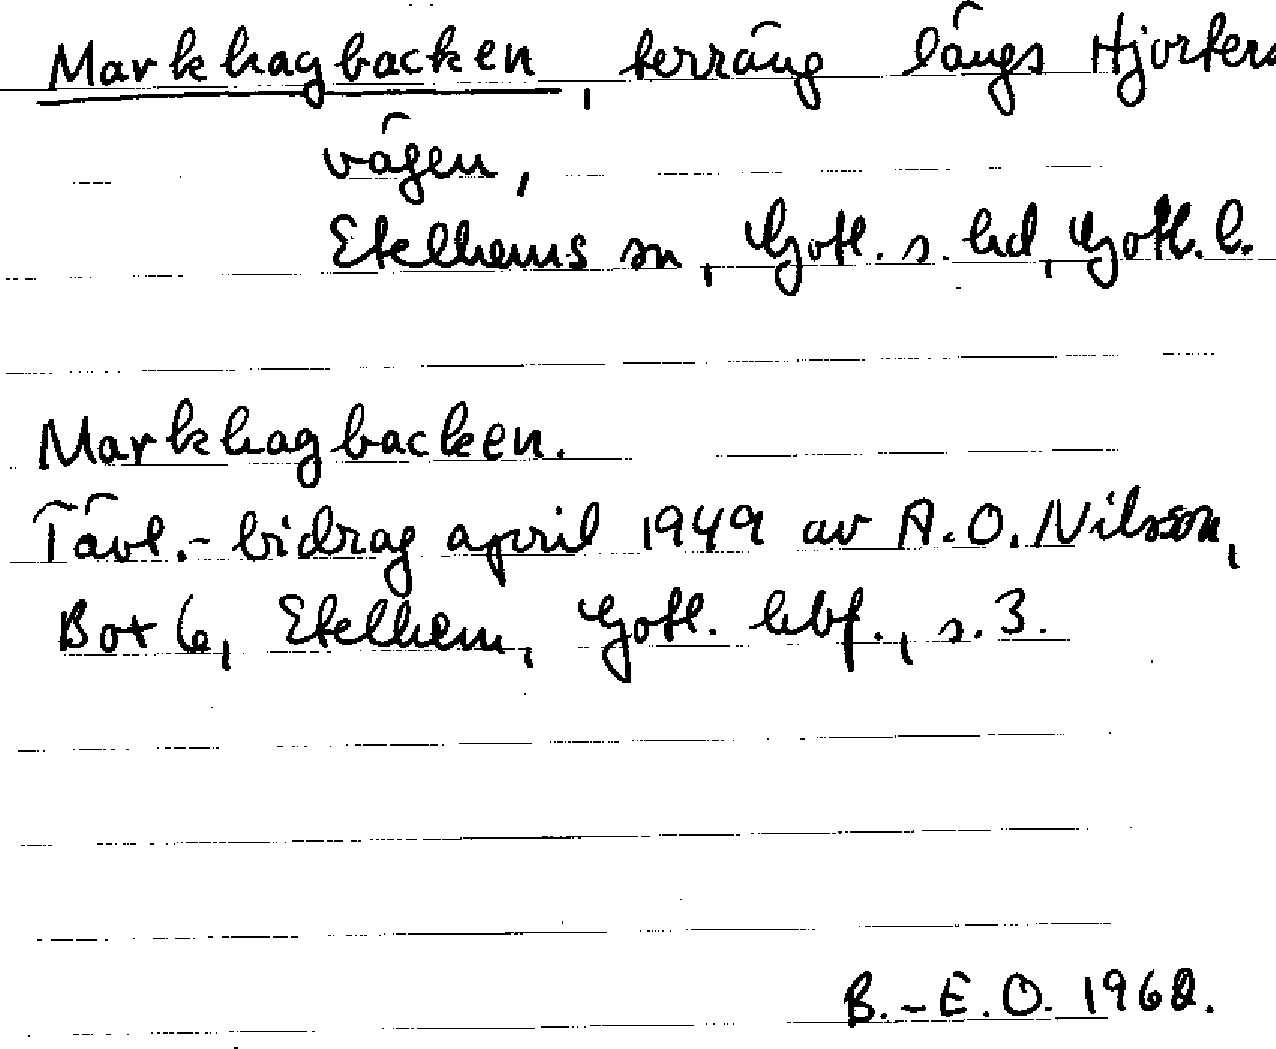 Markhagbacken, terräng längs Hjorters
vägen,
Etelhems sn, Gotl. s. hd, Gotl. l.
Markhagbacken.
Tävl.- bidrag april 1949 av A.O. Nilsson,
Box 6, Etelhem, Gotl. hbf., s. 3.
B.-E.O. 1962.